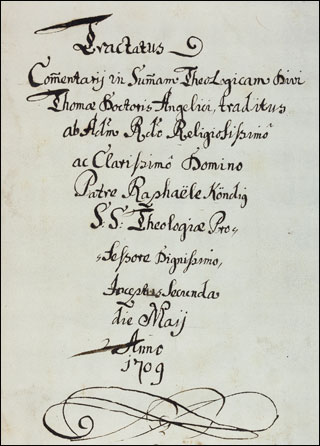 Tractatus
Com̃entarij in Sum̃am TheoLogicam Divi
Thomæ Doctoris Angelici, traditus
ab Adm̃o Rdõ Religiosissimõ
ac Clarissimõ Domino
Patre Raphaële Köndig
S:S: Theologiæ Pro-
-fessore Dignissimo,
Inceptus Secunda
die Maij
Anno
1709